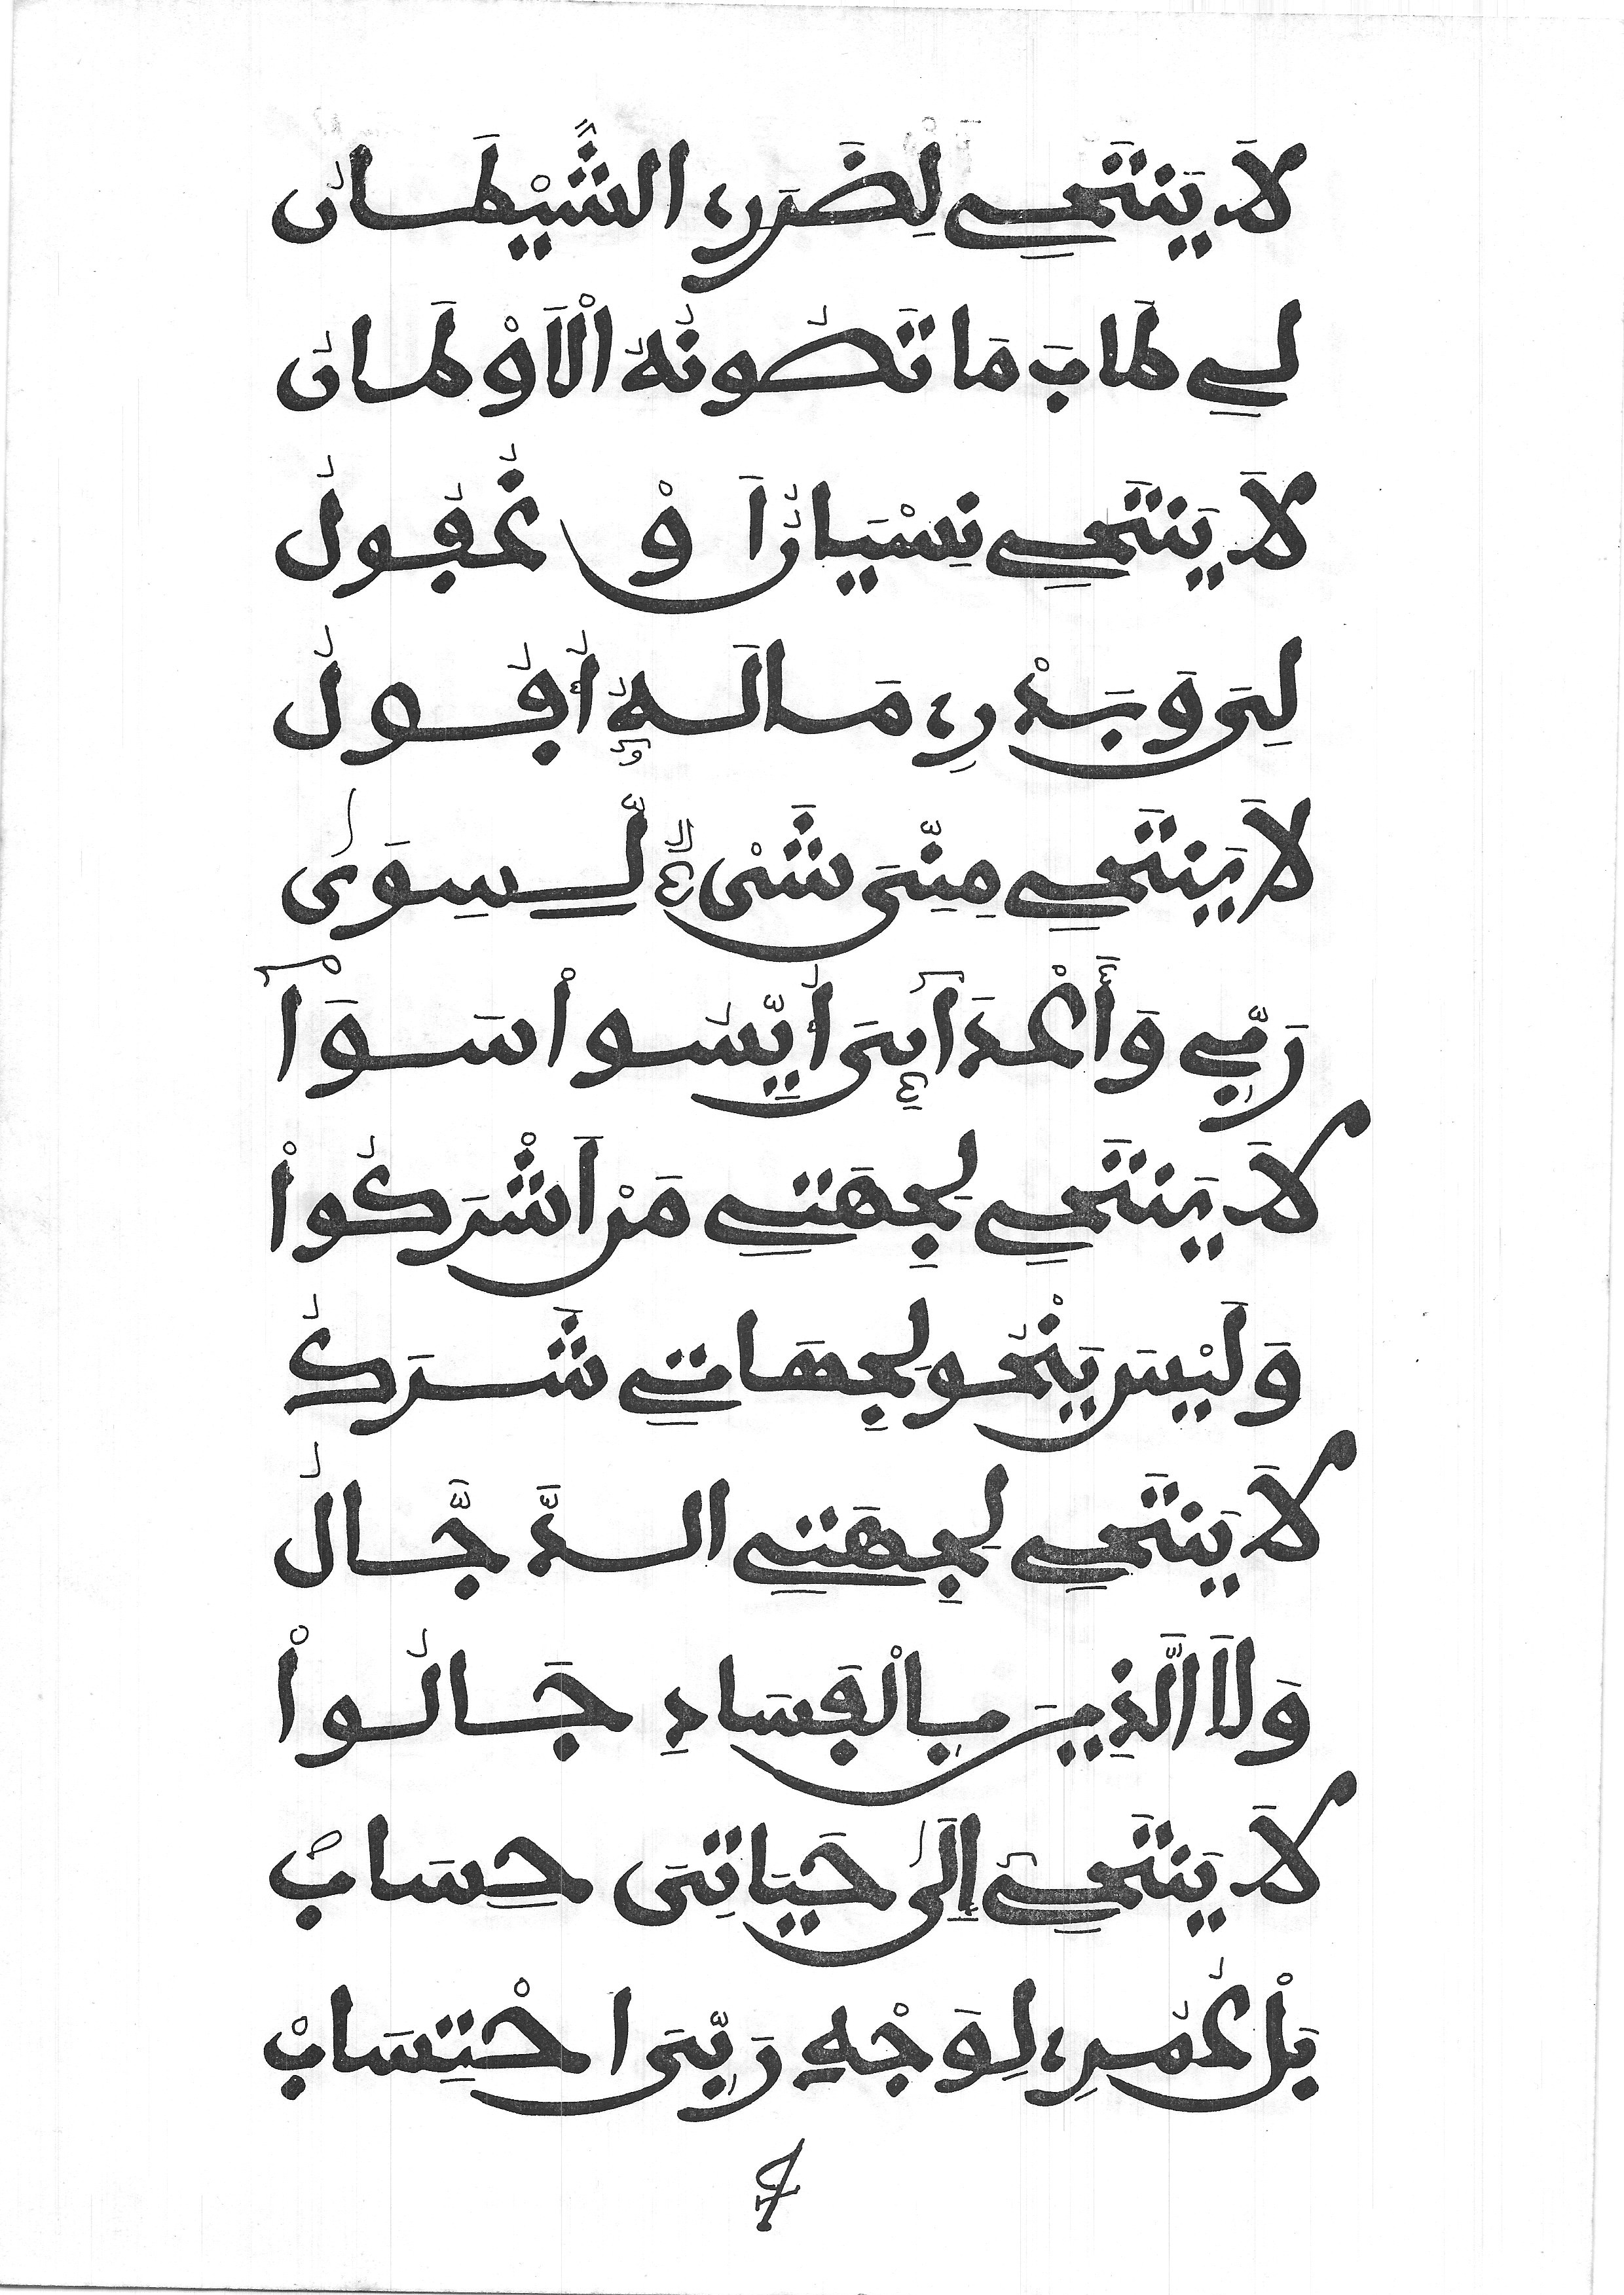 لَا يَنتَحِي لِضَرَرِي الشَّيْطَانُ
لِي طَابَ مَا تَصُونُهُ الْاَوْطَانُ
لَا يَنتَحِي نِسْيَانُ اَوْ غُفُولُ
لِي وَبَدْرِي مَالَهُ أُفُولُ
لَا يَنتَحِي مِنِّي شَيْءٌ لِّسِوَى
رَبِّي وَأَعْدَآئِي أُيِّسُواْ سَوَآ
لَا يَنتَحِي لِجِهَتِي مَنْ اَشْرَكُواْ
وَلَيْسَ يَنْحُو لِجِهَاتِي شَرَكُ
لَا يَنتَحِي لِجِهَتِي الدَّجَّالُ
وَلَا الَّذِينَ بِالْفَسَادِ جَالُواْ
لَا يَنتَحِي إِلَى حَيَاتِي حِسَابٌ
بَلْ عُمُرِي لِوَجْهِ رَبِّي احْتِسَابْ
7